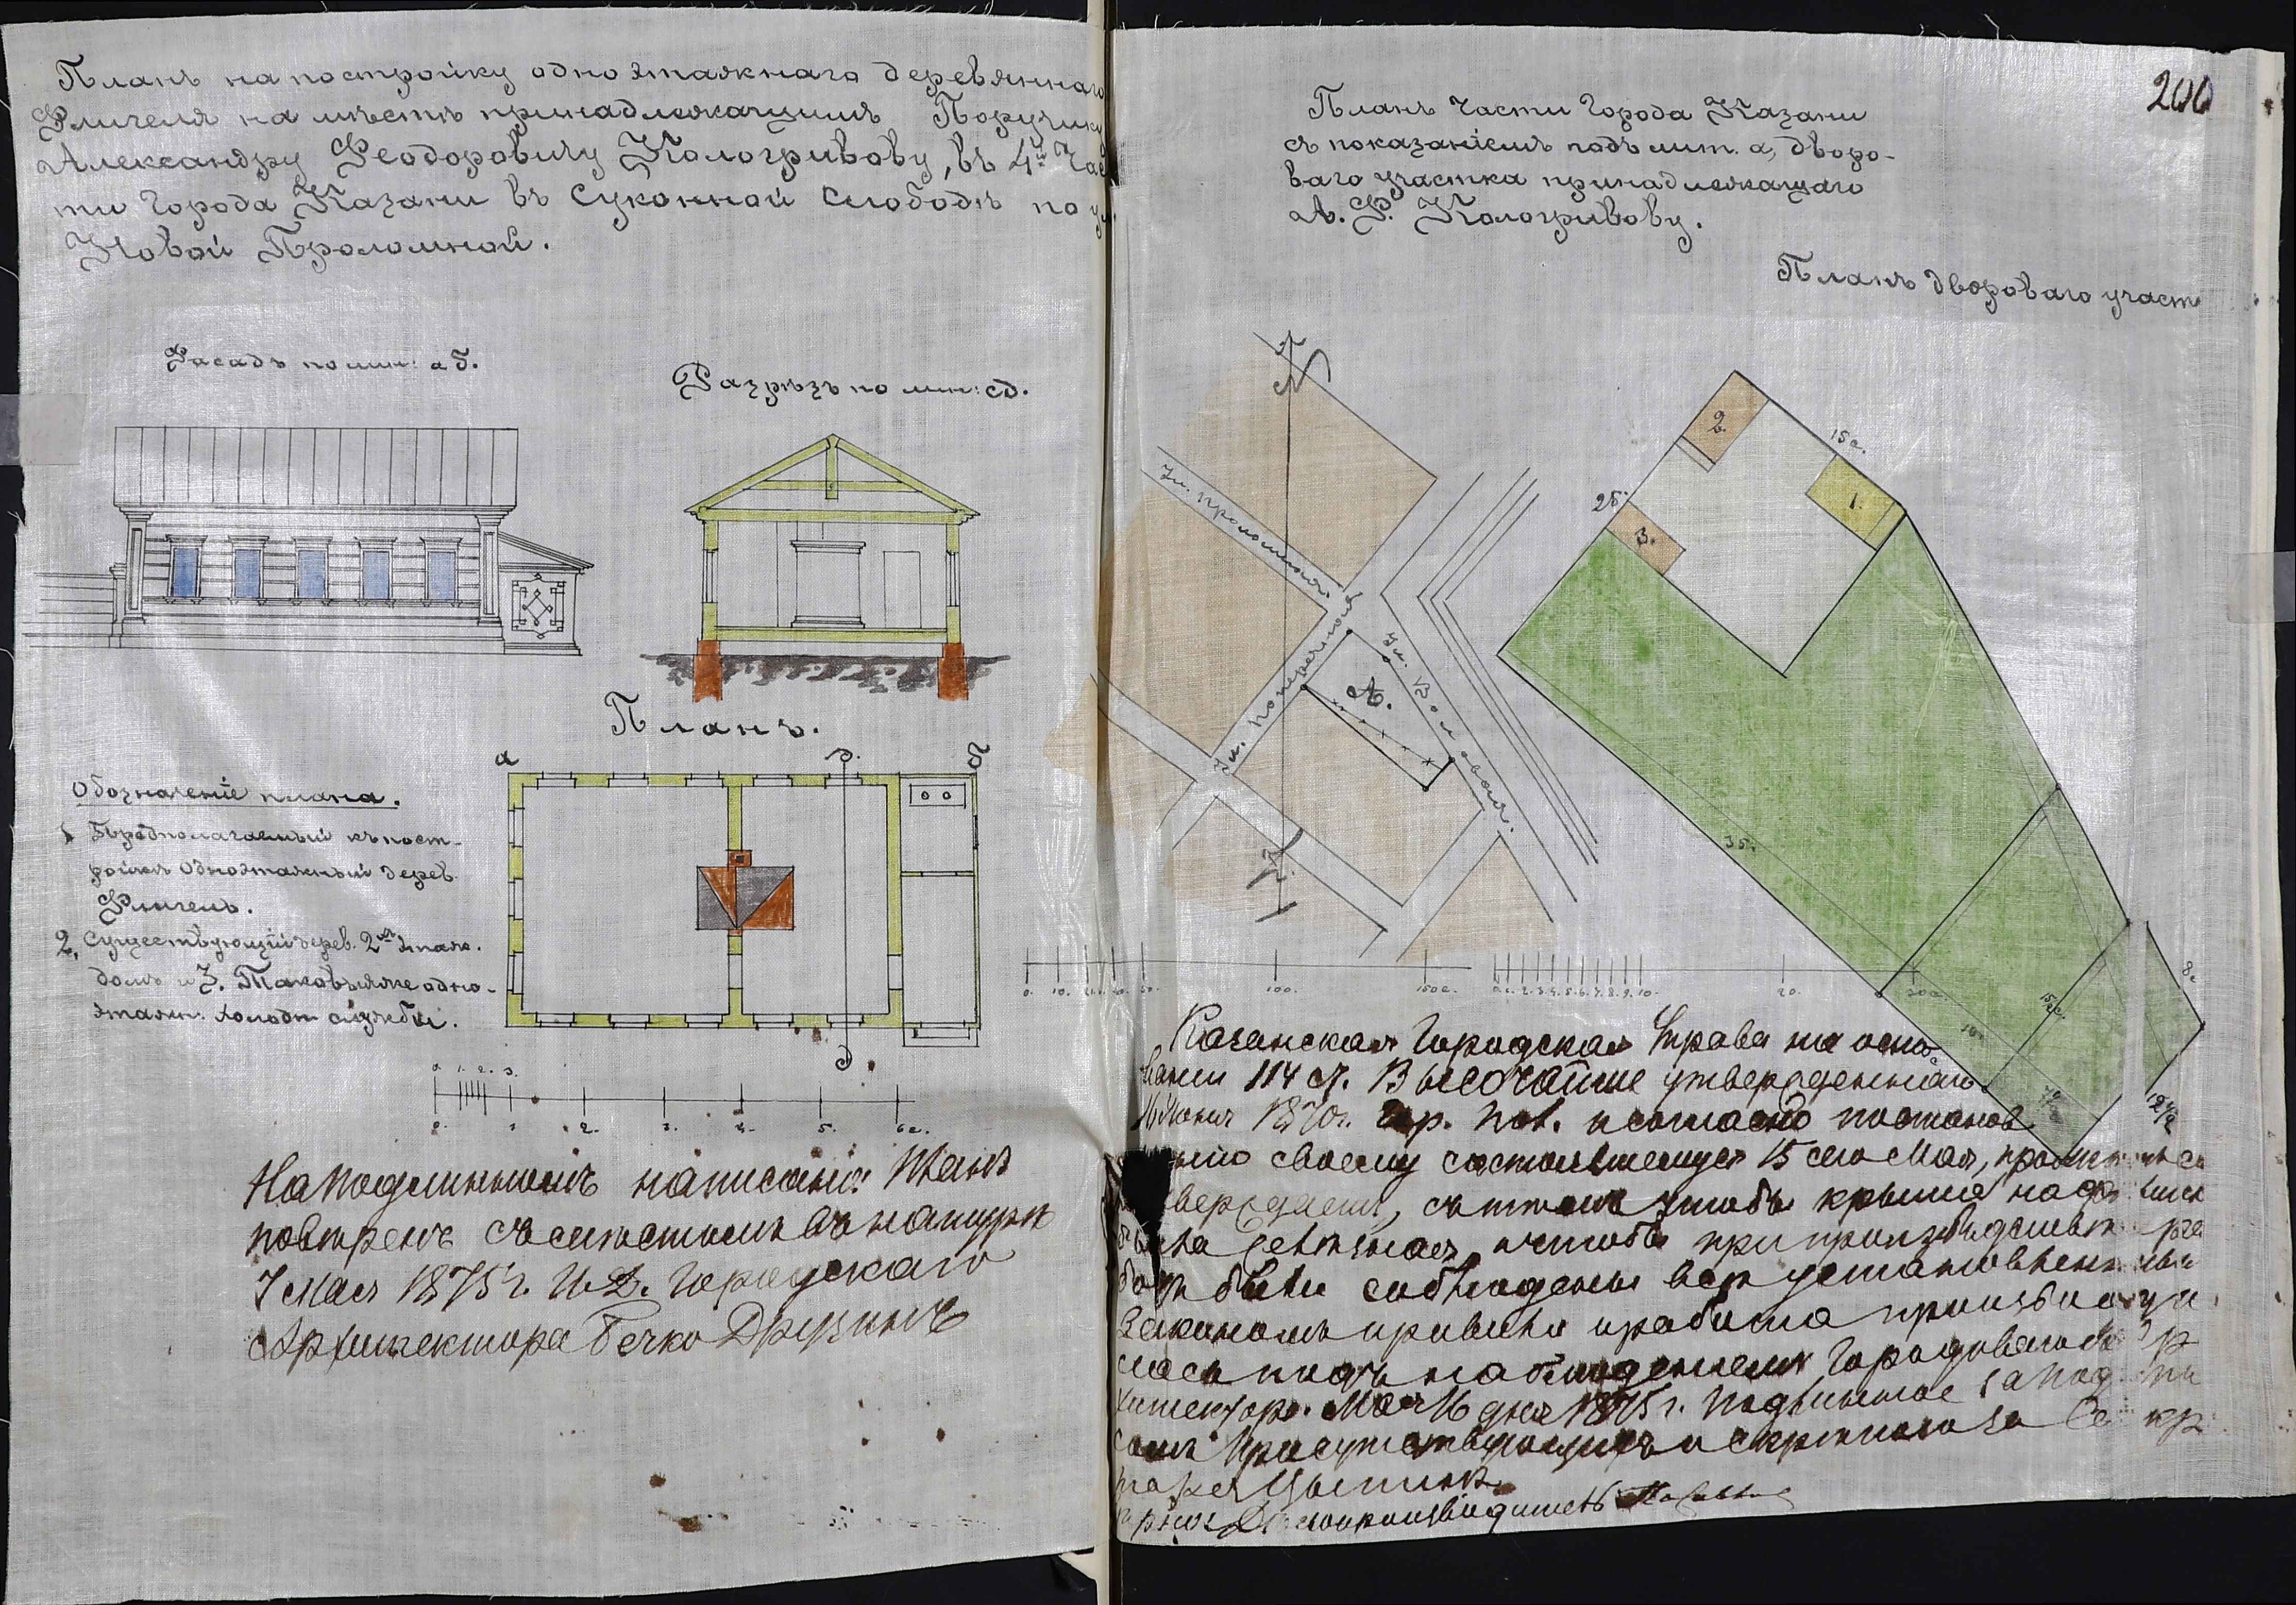 Планъ на постройку одноэтажнаго деревяннаго
Флигеля на мѣстѣ принадлежащимъ Поручику
Александру Феодоровичу Кологривову, въ 4й Час
ти Города Казани въ Суконной Слободѣ по ул.
Новой Проломной.
Фасадъ по лин: аб.
Разрѣзъ по лин: сд.
Планъ.
а
д.
б
д
Обозначеніе плана.
1 Предполагаемый къ пост-
ройкѣ Одноэтажный дерев.
Флигель.
2, Существующій дерев. 2хъ этаж.
домъ и 3. Таковыяже одно-
этажн: холодн службы.
0. 1. 2. 3.
0. 1 2. 3. 4. 5. 6с.
На подлинномъ написано: Планъ
повѣренъ съ мѣстомъ въ натурѣ
7 Мая 1875 г. И. Д. Городскаго
Архитектора Бечко Друзинъ
200
Планъ Части Города Казани
съ показаніемъ подъ лит. а, дворо-
ваго участка принадлежащаго
А. Ф. Кологривову.
Планъ двороваго участ
С
Ул. проломная.
Ул. поперечная
Ул.
А.
Ю
2.
15с.
1.
25
3.
35.
15с.
8с
10.
12½
0. 10. 50. 100. 150с.
0. 1. 2. 3. 4. 5. 6. 7. 8. 9. 10. 20. 30с.
Казанская Городская Управа на осно-
ваніи 114 ст. Высочайше утвержденнаго
16 Іюня 1870 г. Гор. Пол. и согласно постанов
нію своему состоявшемуся 15 сего Мая, проэктъ сей
верждаетъ, съ тѣмъ чтобы крыша надъ
была желѣзная, и чтобы при производствѣ ра
ботъ были соблюдены всѣ установленныя
Закономъ правила и работа производи
лась подъ наблюденіемъ Городоваго Ар
хитектора. Мая 16 дня 1875 г. Подлинное за под
сомъ Присутствующихъ и скрѣпою за Секр
таря
Дѣлопроизводитель